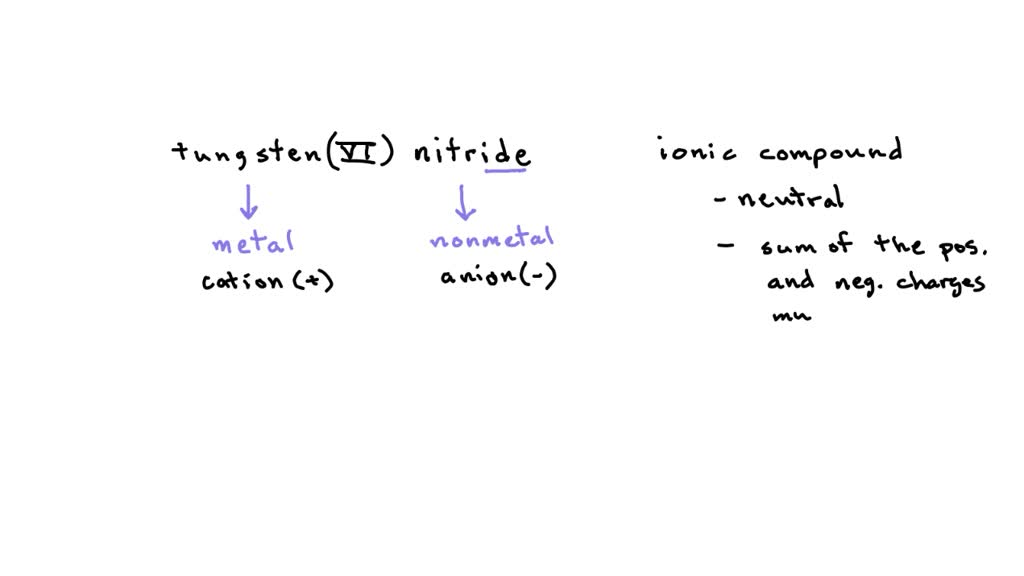 tungsten(VI) nitride
metal nonmetal
cation (+) anion (-)
ionic compound
- neutral
- sum of the pos.
and neg. charges
mu